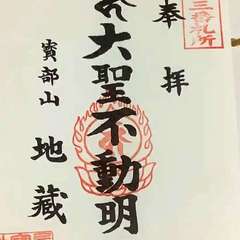 三番札所
奉拝
大聖不動明
寳部山
地蔵